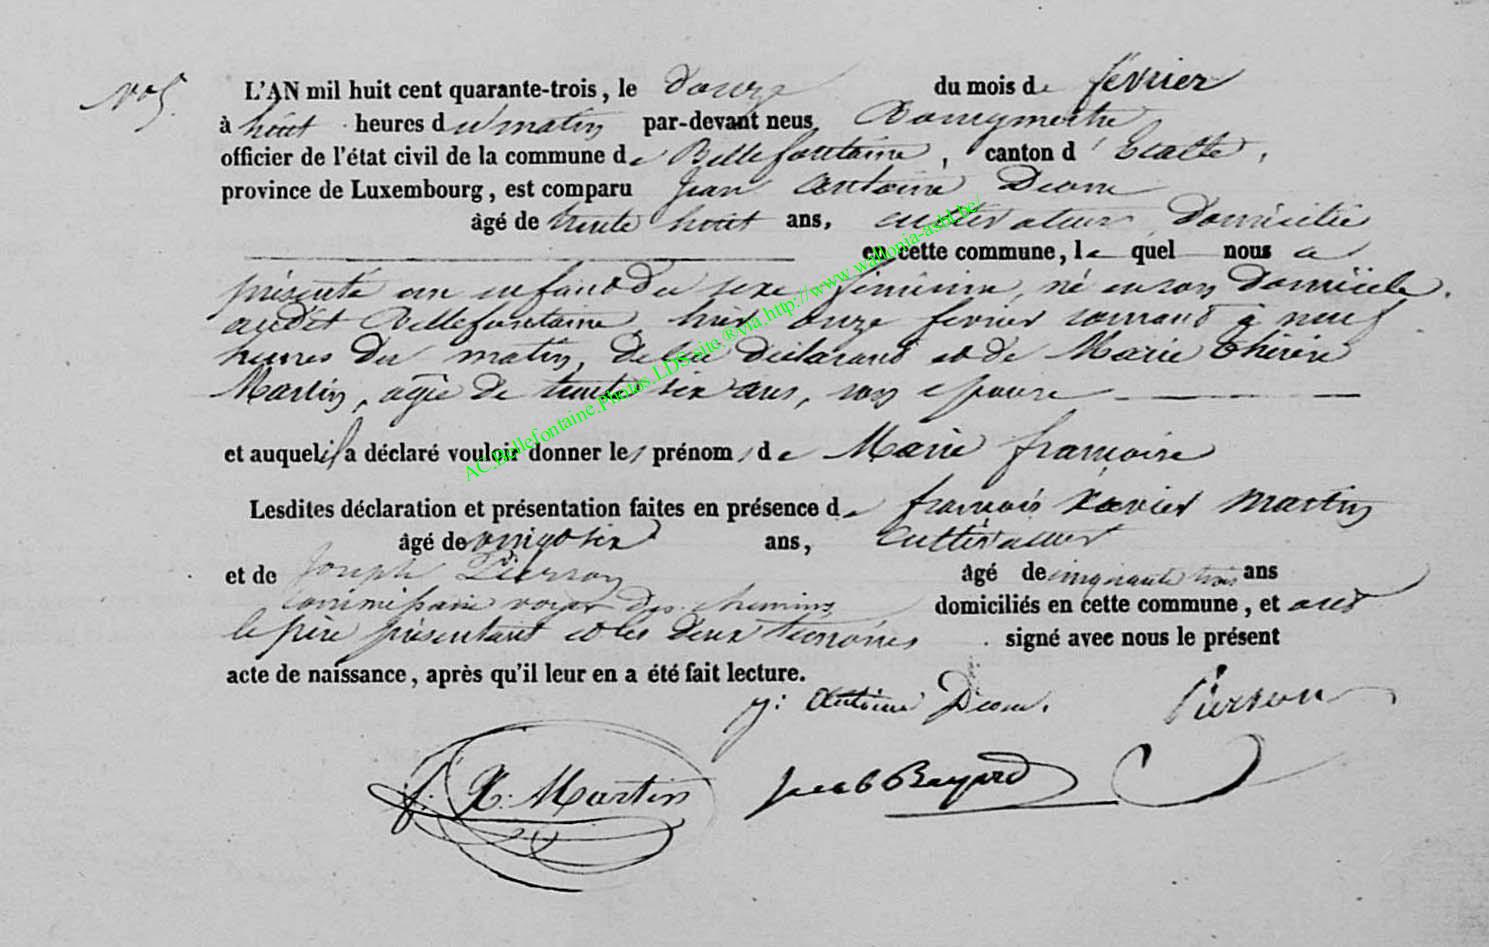 No 5.
L'AN mil huit cent quarante-trois, le douze du mois de février
à huit heures du matin par-devant nous Bourgmestre
officier de l'état civil de la commune de Bellefontaine, canton d'Etalle,
province de Luxembourg, est comparu Jean Antoine Dion
âgé de trente huit ans, cultivateur, domicilié
en cette commune, le quel nous a
présenté un enfant du sexe féminin, né en son domicile
audit Bellefontaine, hier onze février courant à neuf
heures du matin, de lui déclarant et de Marie Thérèse
Martin, agée de trente six ans, son épouse
et auquel il a déclaré vouloir donner les prénoms de Marie françoise
Lesdites déclaration et présentation faites en présence de françois Xavier Martin
âgé de vingt six ans, cultivateur
et de Joseph Pierson âgé de cinquante trois ans
Commissaire voyer des chemins domiciliés en cette commune, et ont
le père présentant et les deux témoins signé avec nous le présent
acte de naissance, après qu'il leur en a été fait lecture.
j: Antoine Dion. Pierson
f. X. Martin Bayard
AC.Bellefontaine.Photos.LDS.site.®via.http://www.wallonia-asbl.be/